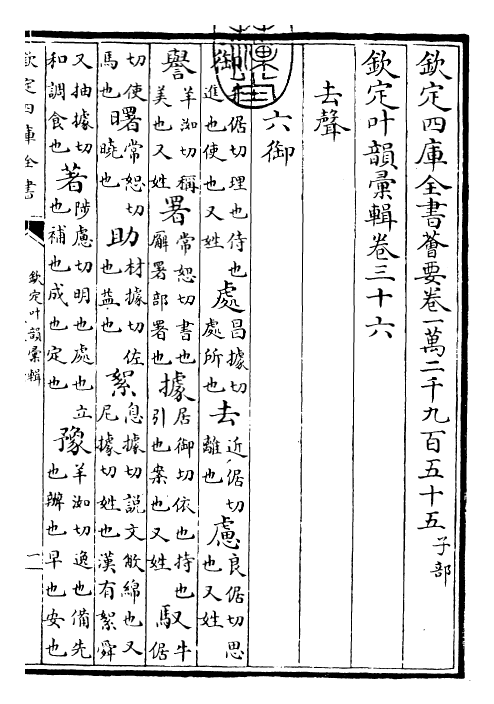 欽定四庫全書薈要卷一萬二千九百五十五 子部
欽定叶韻彚輯卷三十六
去聲
六御
御倨切理也侍也進也使也又姓 處昌據切處所也 去近倨切離也 慮良倨切思也又姓
譽羊洳切稱美也又姓 署常恕切書也廨署部署也 據居御切依也持也引也案也又姓 馭牛倨
切使馬也 曙常恕切曉也 助材據切佐也益也 絮息據切說文敝綿也又尼據切姓也漢有絮舜
又抽據切和調食也 著陟慮切明也處也立也補也成也定也 豫羊洳切逸也備先也辦也早也安也
欽定四庫全書
欽定叶韻彚輯
一